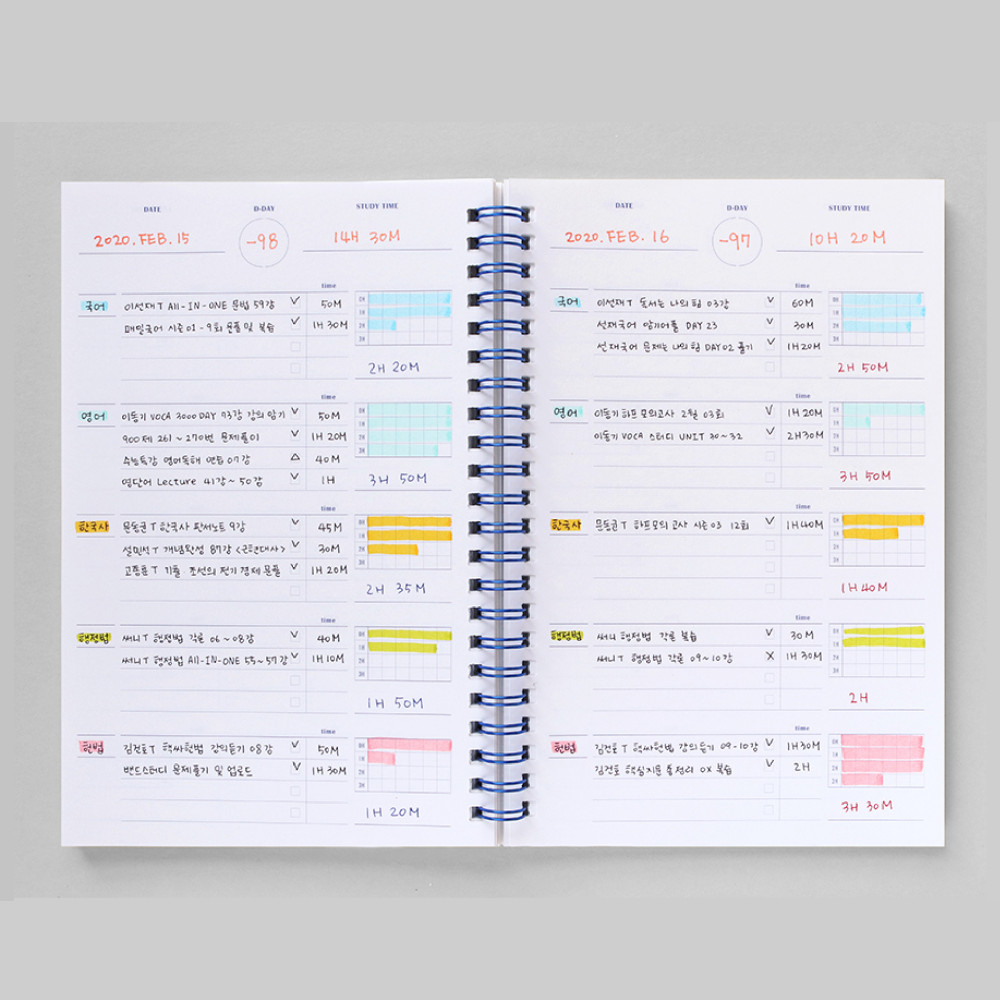 DATE D-DAY STUDY TIME
2020.FEB.15 -98 14H 30M
time
국어 이선재T All-IN-ONE 문법 59강 ✓ 50M
매일국어 시즌01-9회 문풀 및 복습 ✓ 1H 30M
2H 20M
time
영어 이동기 VOCA 3000 DAY 93강 강의 암기 ✓ 50M
900제 261~270번 문제풀이 ✓ 1H 20M
수능특강 영어독해 연습 07강 △ 40M
영단어 Lecture 41강~50강 ✓ 1H
3H 50M
time
한국사 문동균T 한국사 판서노트 9강 ✓ 45M
설민석T 개념완성 87강 <근현대사> ✓ 30M
고종훈T 기풀 조선의 전기 경제 문풀 ✓ 1H 20M
2H 35M
time
행정법 써니T 행정법 각론 06~08강 ✓ 40M
써니T 행정법 All-IN-ONE 55~57강 ✓ 1H 10M
1H 50M
time
헌법 김건호T 핵싸헌법 강의듣기 08강 ✓ 50M
밴드스터디 문제풀기 및 업로드 ✓ 1H 30M
1H 20M
DATE D-DAY STUDY TIME
2020.FEB.16 -97 10H 20M
time
국어 이선재T 독서는 나의 힘 03강 ✓ 60M
선재국어 암기어플 DAY 23 ✓ 30M
선재국어 문제는 나의 힘 DAY 02 풀기 ✓ 1H 20M
2H 50M
time
영어 이동기 하프모의고사 2월 03회 ✓ 1H 20M
이동기 VOCA 스터디 UNIT 30~32 ✓ 2H 30M
3H 50M
time
한국사 문동균T 하프모의고사 시즌03 12회 ✓ 1H 40M
1H 40M
time
행정법 써니 행정법 각론 복습 ✓ 30M
써니T 행정법 각론 09~10강 X 1H 30M
2H
time
헌법 김건호T 핵싸헌법 강의듣기 09-10강 ✓ 1H 30M
김건호 핵심지문 총정리 OX 복습 ✓ 2H
3H 30M